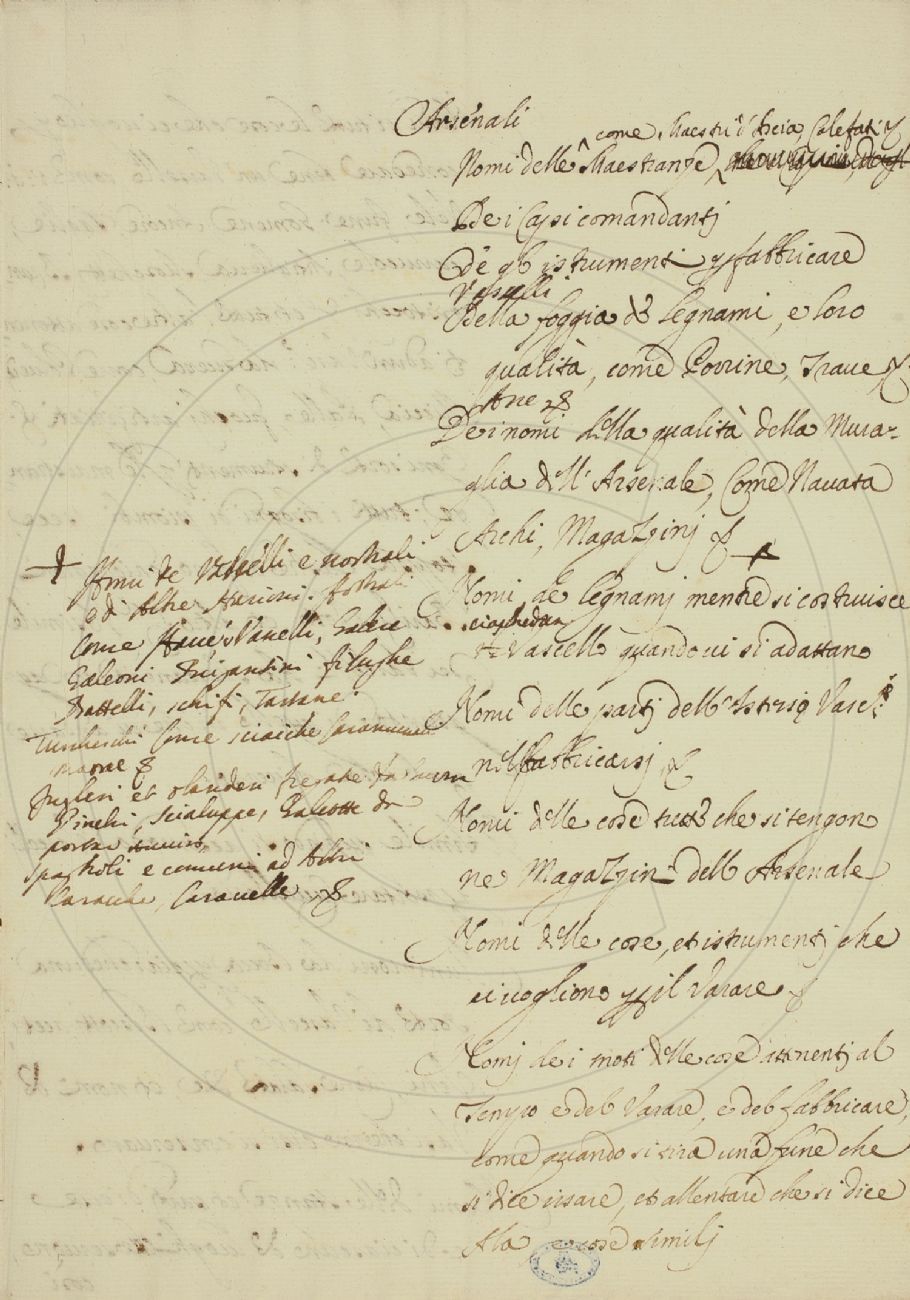 Arsenali
come Maestri d'Ascia, Calefati &
Nomi delle Maestranze,
De i Capi comandanti
De gl' istrumenti p fabbricare
Vascelli
Della foggia de Legnami, e loro
qualità, come Porrine, Trave &
Ane &
De i nomi della qualità della Mura-
glia dell' Arsenale, Come Navata
Archi, Magazzinj &
Nomi de Legnamj mentre si costruisce
Vascello quando vi si adattano
Nomi delle partj dell' Vasc.
nel fabbricarsj &
Nomi delle cose tutte che si tengon
ne Magazzini dell Arsenale
Nomi delle cose, et istrumentj che
ci vogliono p il Varare &
Nomj de i moti delle cose attnentj al
Tempo e del Varare, e del fabbricare,
come quando si tira una fune che
si dice issare, et allentare che si dice
Ala e cose similj
+ Nomi de Vascelli e nostrali
e di Altre Nazioni. Nostrali
Come Vascelli, Galee
Galeoni Brigantini filughe
Battelli, schifi, Tartane
Turcheschi Come sciaiche Caramusali
maone &
Inglesi et olandesi fregate
Pinchi, scialuppe, Galeotte da
portar
Spagnoli e comuni ad Altri
Caracche, Caravelle &